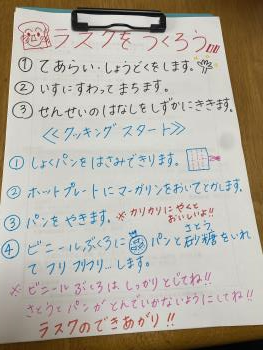 ラスクをつくろう!!!!
① てあらい・しょうどくをします。
② いすにすわって まちます。
③ せんせいの はなしを しずかに ききます。
≪クッキング スタート≫
① しょくパンを はさみできります。
② ホットプレートに マーガリンをおいてとかします。
③ パンを やきます。 ※カリカリにやくと おいしいよ!!
④ ビニールぶくろに パンと 砂糖(さとう)をいれ
て フリフリフリ…します。
※ ビニールぶくろは しっかりとじてね!!
さとうとパンが とんでいかないようにしてね!!
ラスクのできあがり!!